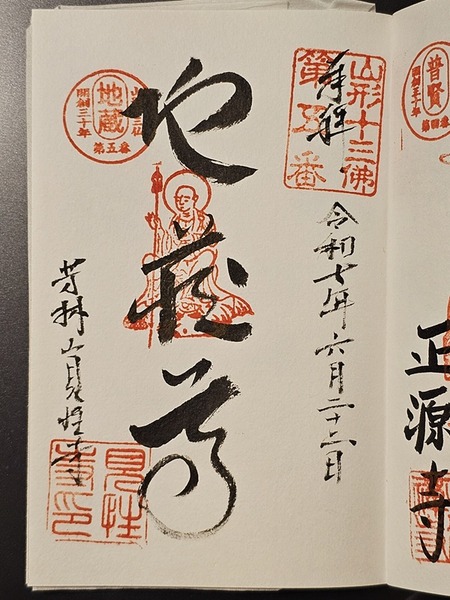 普賢
開創三十年
第四番
正源寺
山形十三佛
第五番
奉拝
令和七年六月二十二日
地蔵尊
山形十三仏
地蔵
開創三十年
第五番
芳林山見性寺
見性
寺印